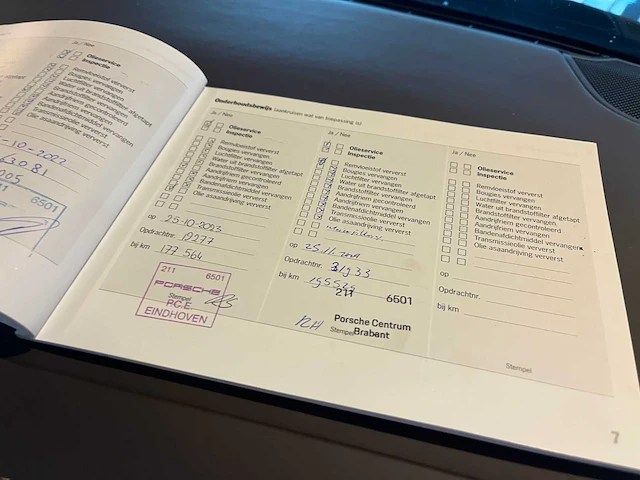 Ja / Nee
Olieservice
Inspectie
Remvloeistof ververst
Bougies vervangen
Luchtfilter vervangen
Water uit brandstoffilter afgetapt
Brandstoffilter vervangen
Aandrijfriem gecontroleerd
Aandrijfriem vervangen
Bandenafdichtmiddel vervangen
Transmissieolie ververst
Olie asaandrijving ververst
-10-2022
63081
005
6501
Onderhoudsbewijs (aankruisen wat van toepassing is)
Ja / Nee
Olieservice
Inspectie
Remvloeistof ververst
Bougies vervangen
Luchtfilter vervangen
Water uit brandstoffilter afgetapt
Brandstoffilter vervangen
Aandrijfriem gecontroleerd
Aandrijfriem vervangen
Bandenafdichtmiddel vervangen
Transmissieolie ververst
Olie asaandrijving ververst
op 25-10-2023
Opdrachtnr. 12277
bij km 177 564
211 6501
PORSCHE
Stempel
P.C.E.
EINDHOVEN
Ja / Nee
Olieservice
Inspectie
Remvloeistof ververst
Bougies vervangen
Luchtfilter vervangen
Water uit brandstoffilter afgetapt
Brandstoffilter vervangen
Aandrijfriem gecontroleerd
Aandrijfriem vervangen
Bandenafdichtmiddel vervangen
Transmissieolie ververst
Olie asaandrijving ververst
op 25-11-2024
Opdrachtnr. 31933
bij km
211 6501
Porsche Centrum
Stempel Brabant
Ja / Nee
Olieservice
Inspectie
Remvloeistof ververst
Bougies vervangen
Luchtfilter vervangen
Water uit brandstoffilter afgetapt
Brandstoffilter vervangen
Aandrijfriem gecontroleerd
Aandrijfriem vervangen
Bandenafdichtmiddel vervangen
Transmissieolie ververst
Olie asaandrijving ververst
op
Opdrachtnr.
bij km
Stempel
7